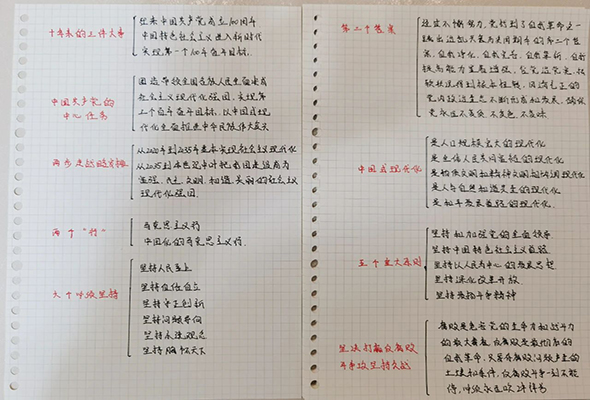 十年来的三件大事
迎来中国共产党成立100周年
中国特色社会主义进入新时代
实现第一个100年奋斗目标.
中国共产党的
中心任务
团结带领全国各族人民全面建成
社会主义现代化强国，实现第
二个百年奋斗目标，以中国式现
代化全面推进中华民族伟大复兴
两步走战略安排
从2020年到2035年基本实现社会主义现代化
从2035到本世纪中叶把我国建设成为
富强、民主、文明、和谐、美丽的社会主义
现代化强国.
两个"行"
马克思主义行
中国化的马克思主义行.
六个必须坚持
坚持人民至上
坚持自信自立
坚持守正创新
坚持问题导向
坚持系统观念
坚持胸怀天下
第二个答案
经过不懈努力,党找到了自我革命这一
跳出治乱兴衰历史周期率的第二个答
案，自我净化、自我完善、自我革新、自我
提高能力显著增强，管党治党宽松
软状况得到根本扭转，风清气正的
党内政治生态不断形成和发展，确保
党永远不变质、不变色、不变味
中国式现代化
是人口规模巨大的现代化
是全体人民共同富裕的现代化
是物质文明和精神文明相协调现代化
是人与自然和谐共生的现代化
是和平发展道路的现代化.
五个重大原则
坚持和加强党的全面领导
坚持中国特色社会主义道路
坚持以人民为中心的发展思想
坚持深化改革开放
坚持发扬斗争精神
坚决打赢反腐败
斗争攻坚持久战
腐败是危害党的生命力和战斗力
的最大毒瘤，反腐败是最彻底的
自我革命，只要存腐败问题产生的
土壤和条件，反腐败斗争一刻不能
停，必须永远吹冲锋号